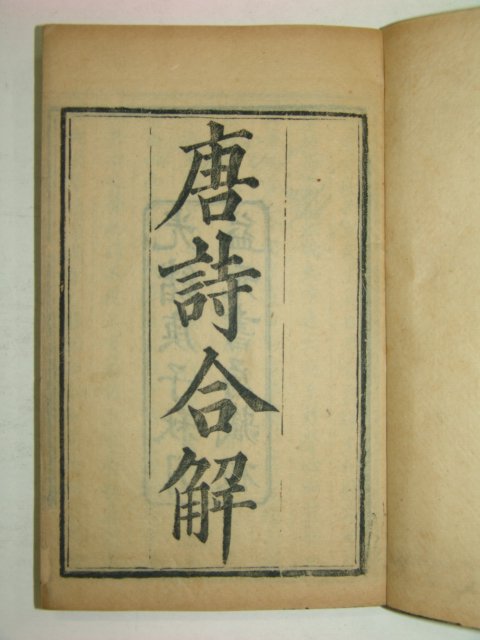 唐詩合解